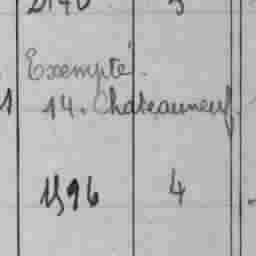 Exempté.
14. Chateauneuf
1596 4